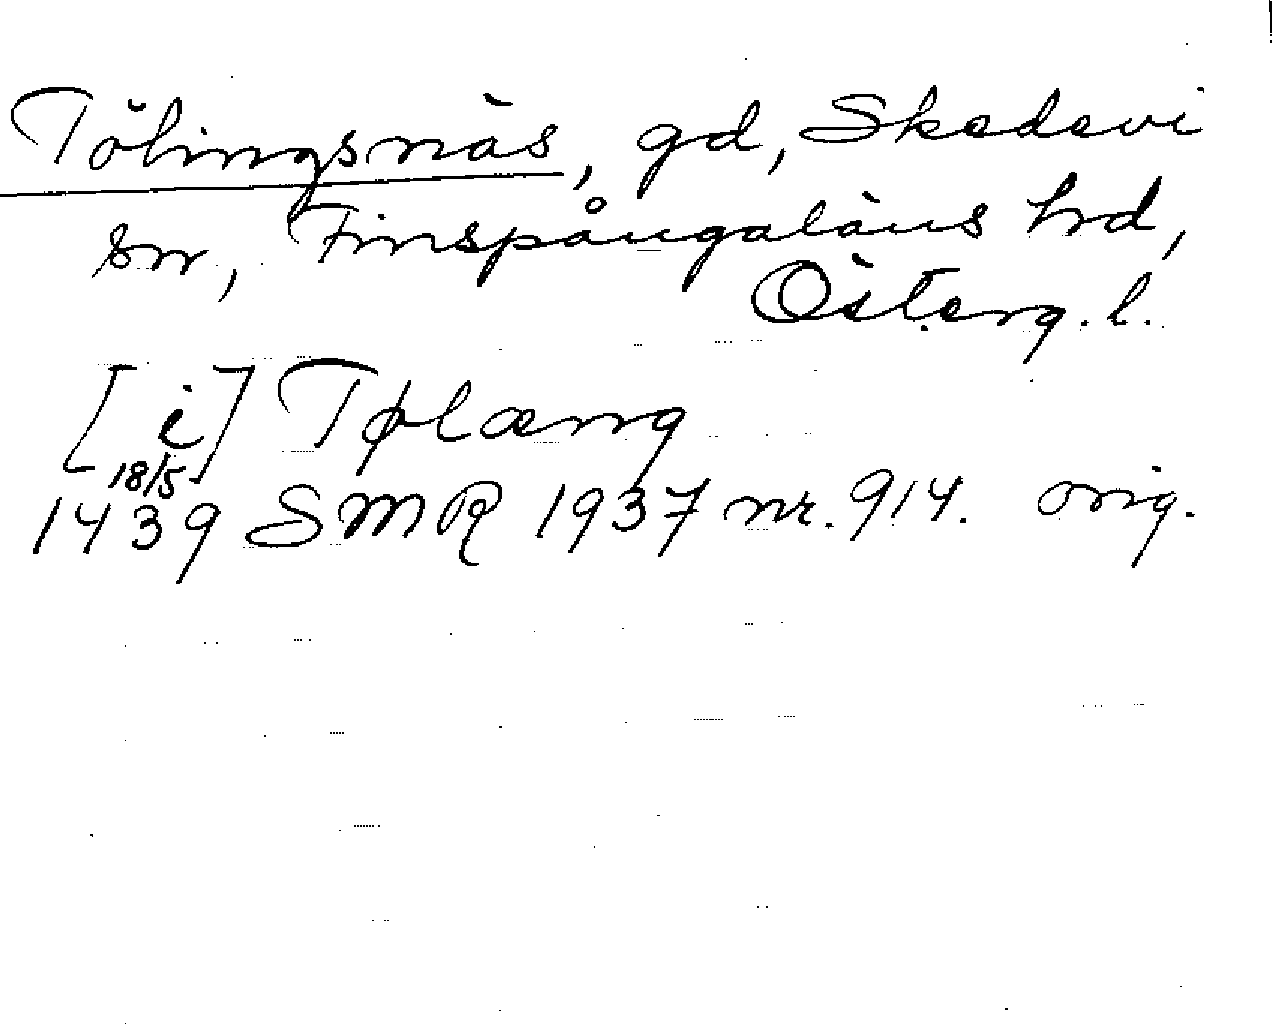 Tölingsnäs, gd, Skedevi
sn, Finspångaläns hrd,
Österg. l.
[i] Tølæng
18/5
1439 SMR 1937 nr. 914. orig.